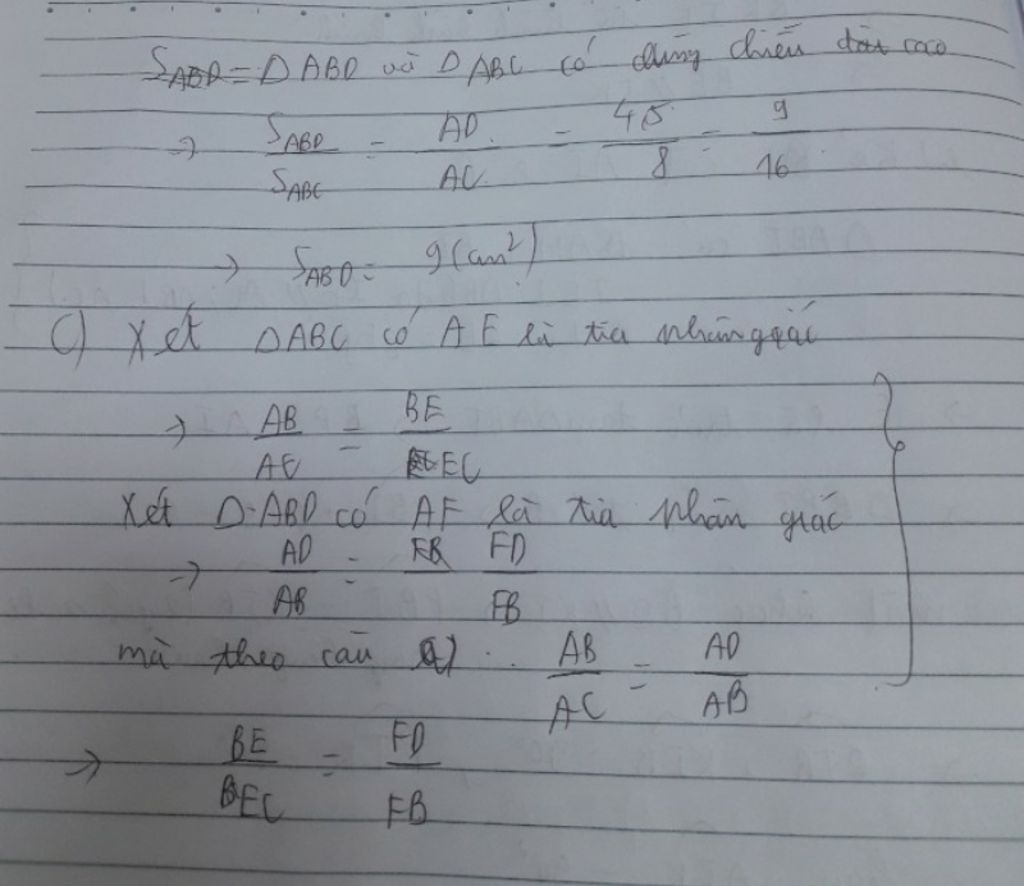 S_ABD = Δ ABD và Δ ABC có cùng chiều cao
→ S_ABD / S_ABC = AD / AC = 4,5 / 8 = 9 / 16
→ S_ABD = 9 (cm²)
C) Xét ΔABC có AE là tia phân giác
→ AB / AC = BE / EC
Xét Δ ABD có AF là tia phân giác
→ AD / AB = FD / FB
mà theo câu a) AB / AC = AD / AB
→ BE / EC = FD / FB